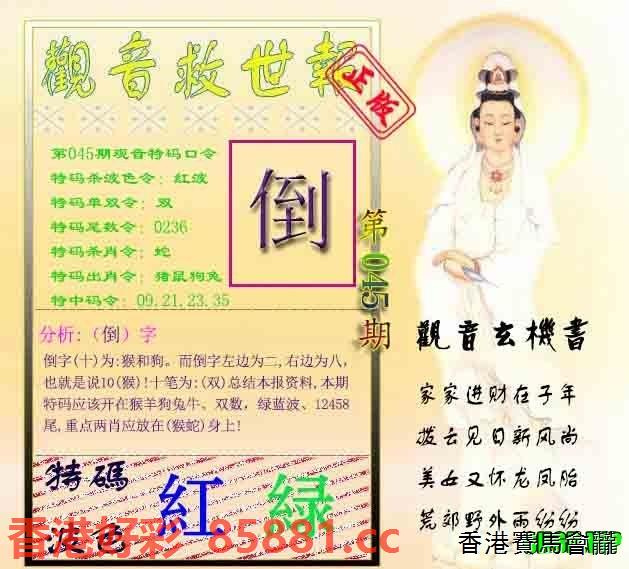 觀音救世報
正版
第045期观音特码口令
特码杀波色令: 红波
特码单双令: 双
特码尾数令: 0236
特码杀肖令: 蛇
特码出肖令: 猪鼠狗兔
特中码令: 09.21.23.35
倒
第045期
分析:（倒）字
倒字(十)为:猴和狗。而倒字左边为二,右边为八,
也就是说10(猴)!十笔为:(双)总结本报资料,本期
特码应该开在猴羊狗兔牛、双数，绿蓝波、12458
尾,重点两肖应放在(猴蛇)身上!
特碼
波色
紅 绿
觀音玄機書
家家进财在子年
拨云见日新风尚
美女又怀龙凤胎
荒郊野外雨纷纷
香港好彩 85881.cc
香港賽馬會